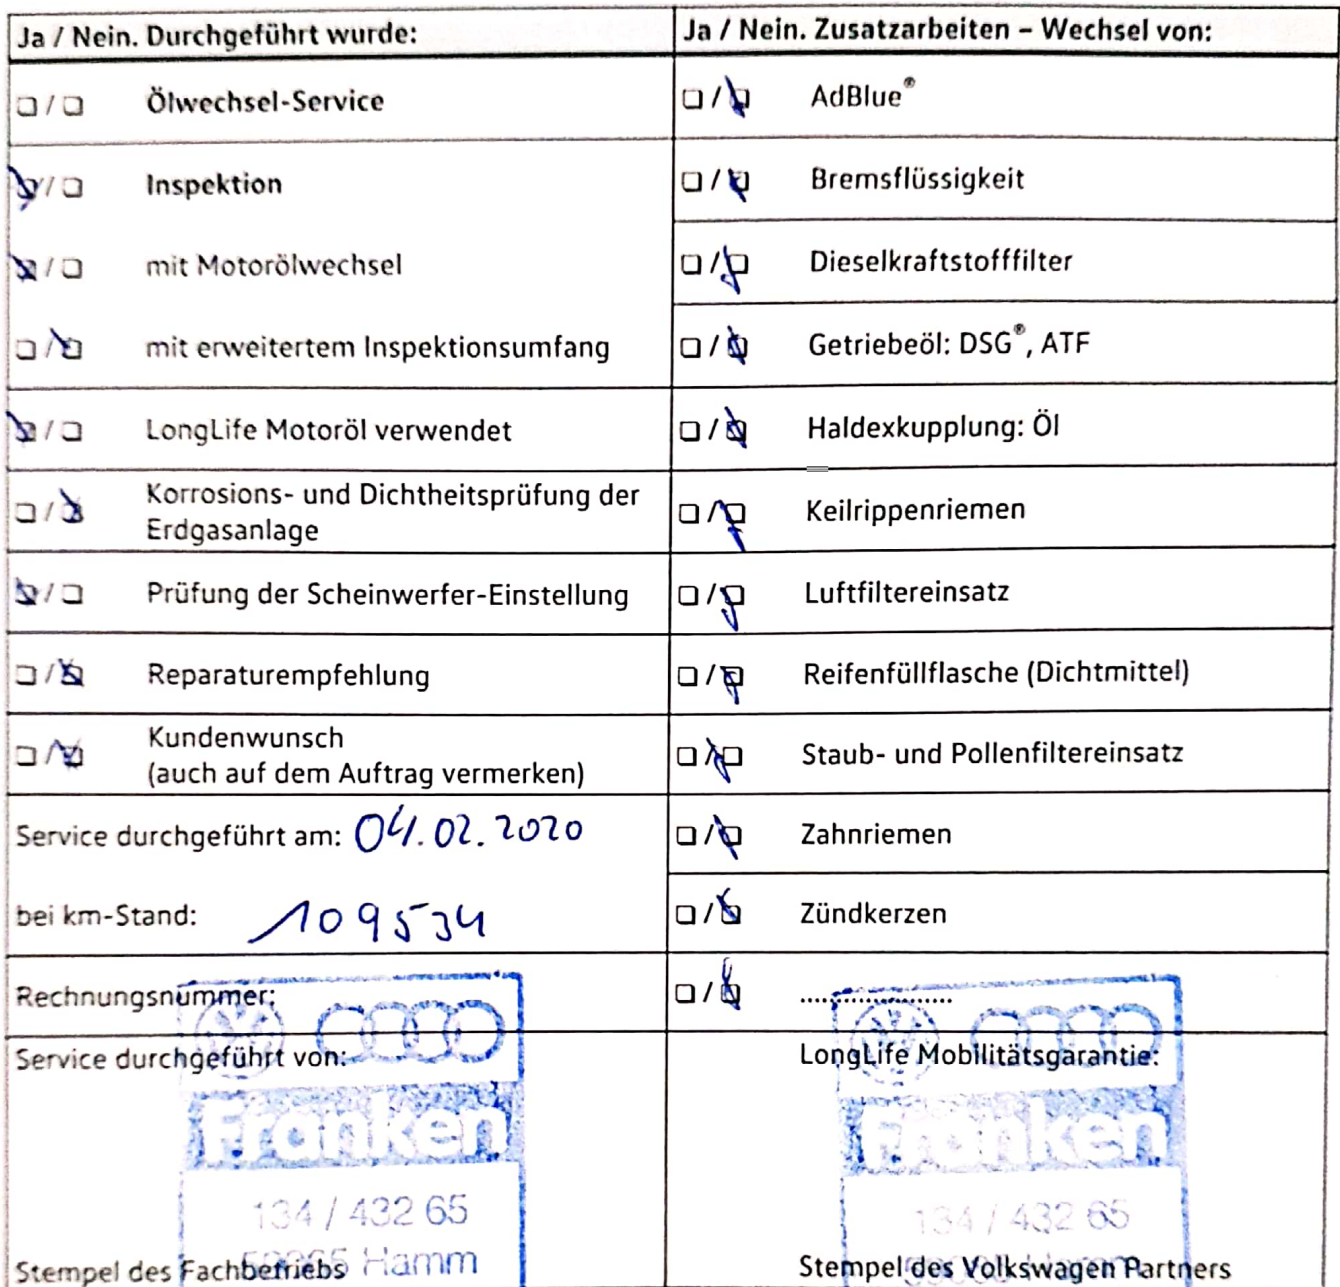 Ja / Nein. Durchgeführt wurde:
Ölwechsel-Service
Inspektion
mit Motorölwechsel
mit erweitertem Inspektionsumfang
LongLife Motoröl verwendet
Korrosions- und Dichtheitsprüfung der
Erdgasanlage
Prüfung der Scheinwerfer-Einstellung
Reparaturempfehlung
Kundenwunsch
(auch auf dem Auftrag vermerken)
Service durchgeführt am: 04.02.2020
bei km-Stand: 109534
Rechnungsnummer:
Service durchgeführt von:
Franken
134 / 432 65
Hamm
Stempel des Fachbetriebs
Ja / Nein. Zusatzarbeiten – Wechsel von:
AdBlue®
Bremsflüssigkeit
Dieselkraftstofffilter
Getriebeöl: DSG®, ATF
Haldexkupplung: Öl
Keilrippenriemen
Luftfiltereinsatz
Reifenfüllflasche (Dichtmittel)
Staub- und Pollenfiltereinsatz
Zahnriemen
Zündkerzen
...................
LongLife Mobilitätsgarantie:
Franken
134 / 432 65
Stempel des Volkswagen Partners